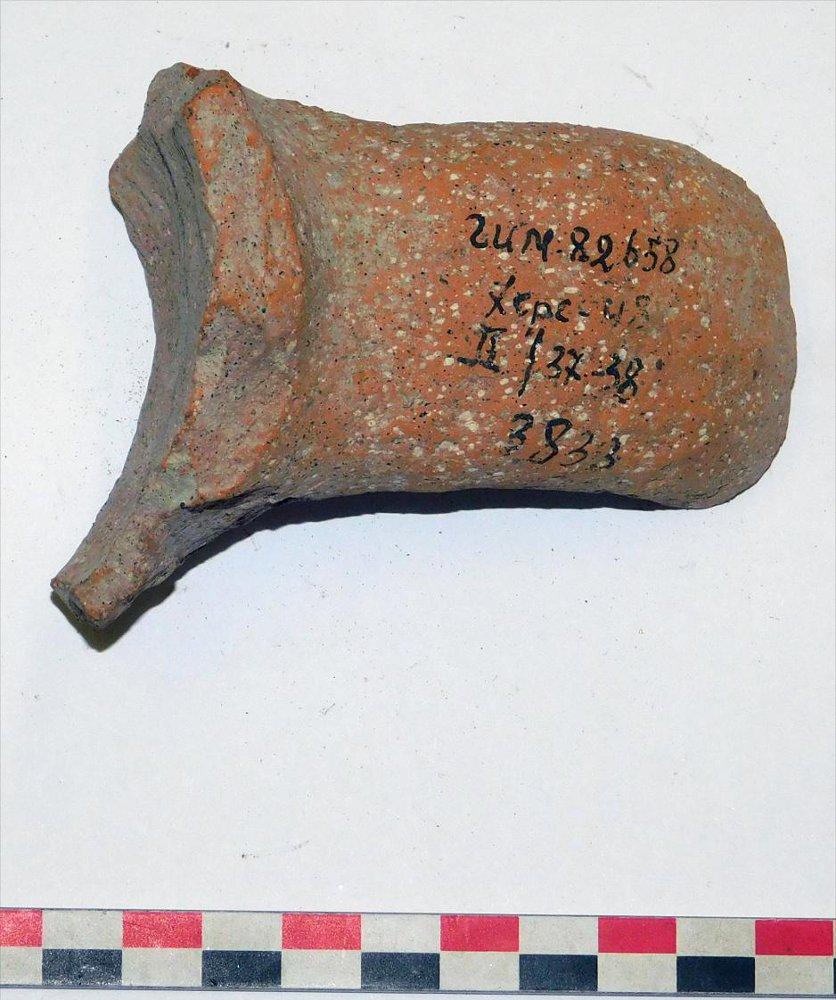 гим. 82658
Херс-
II / 37-38
3833